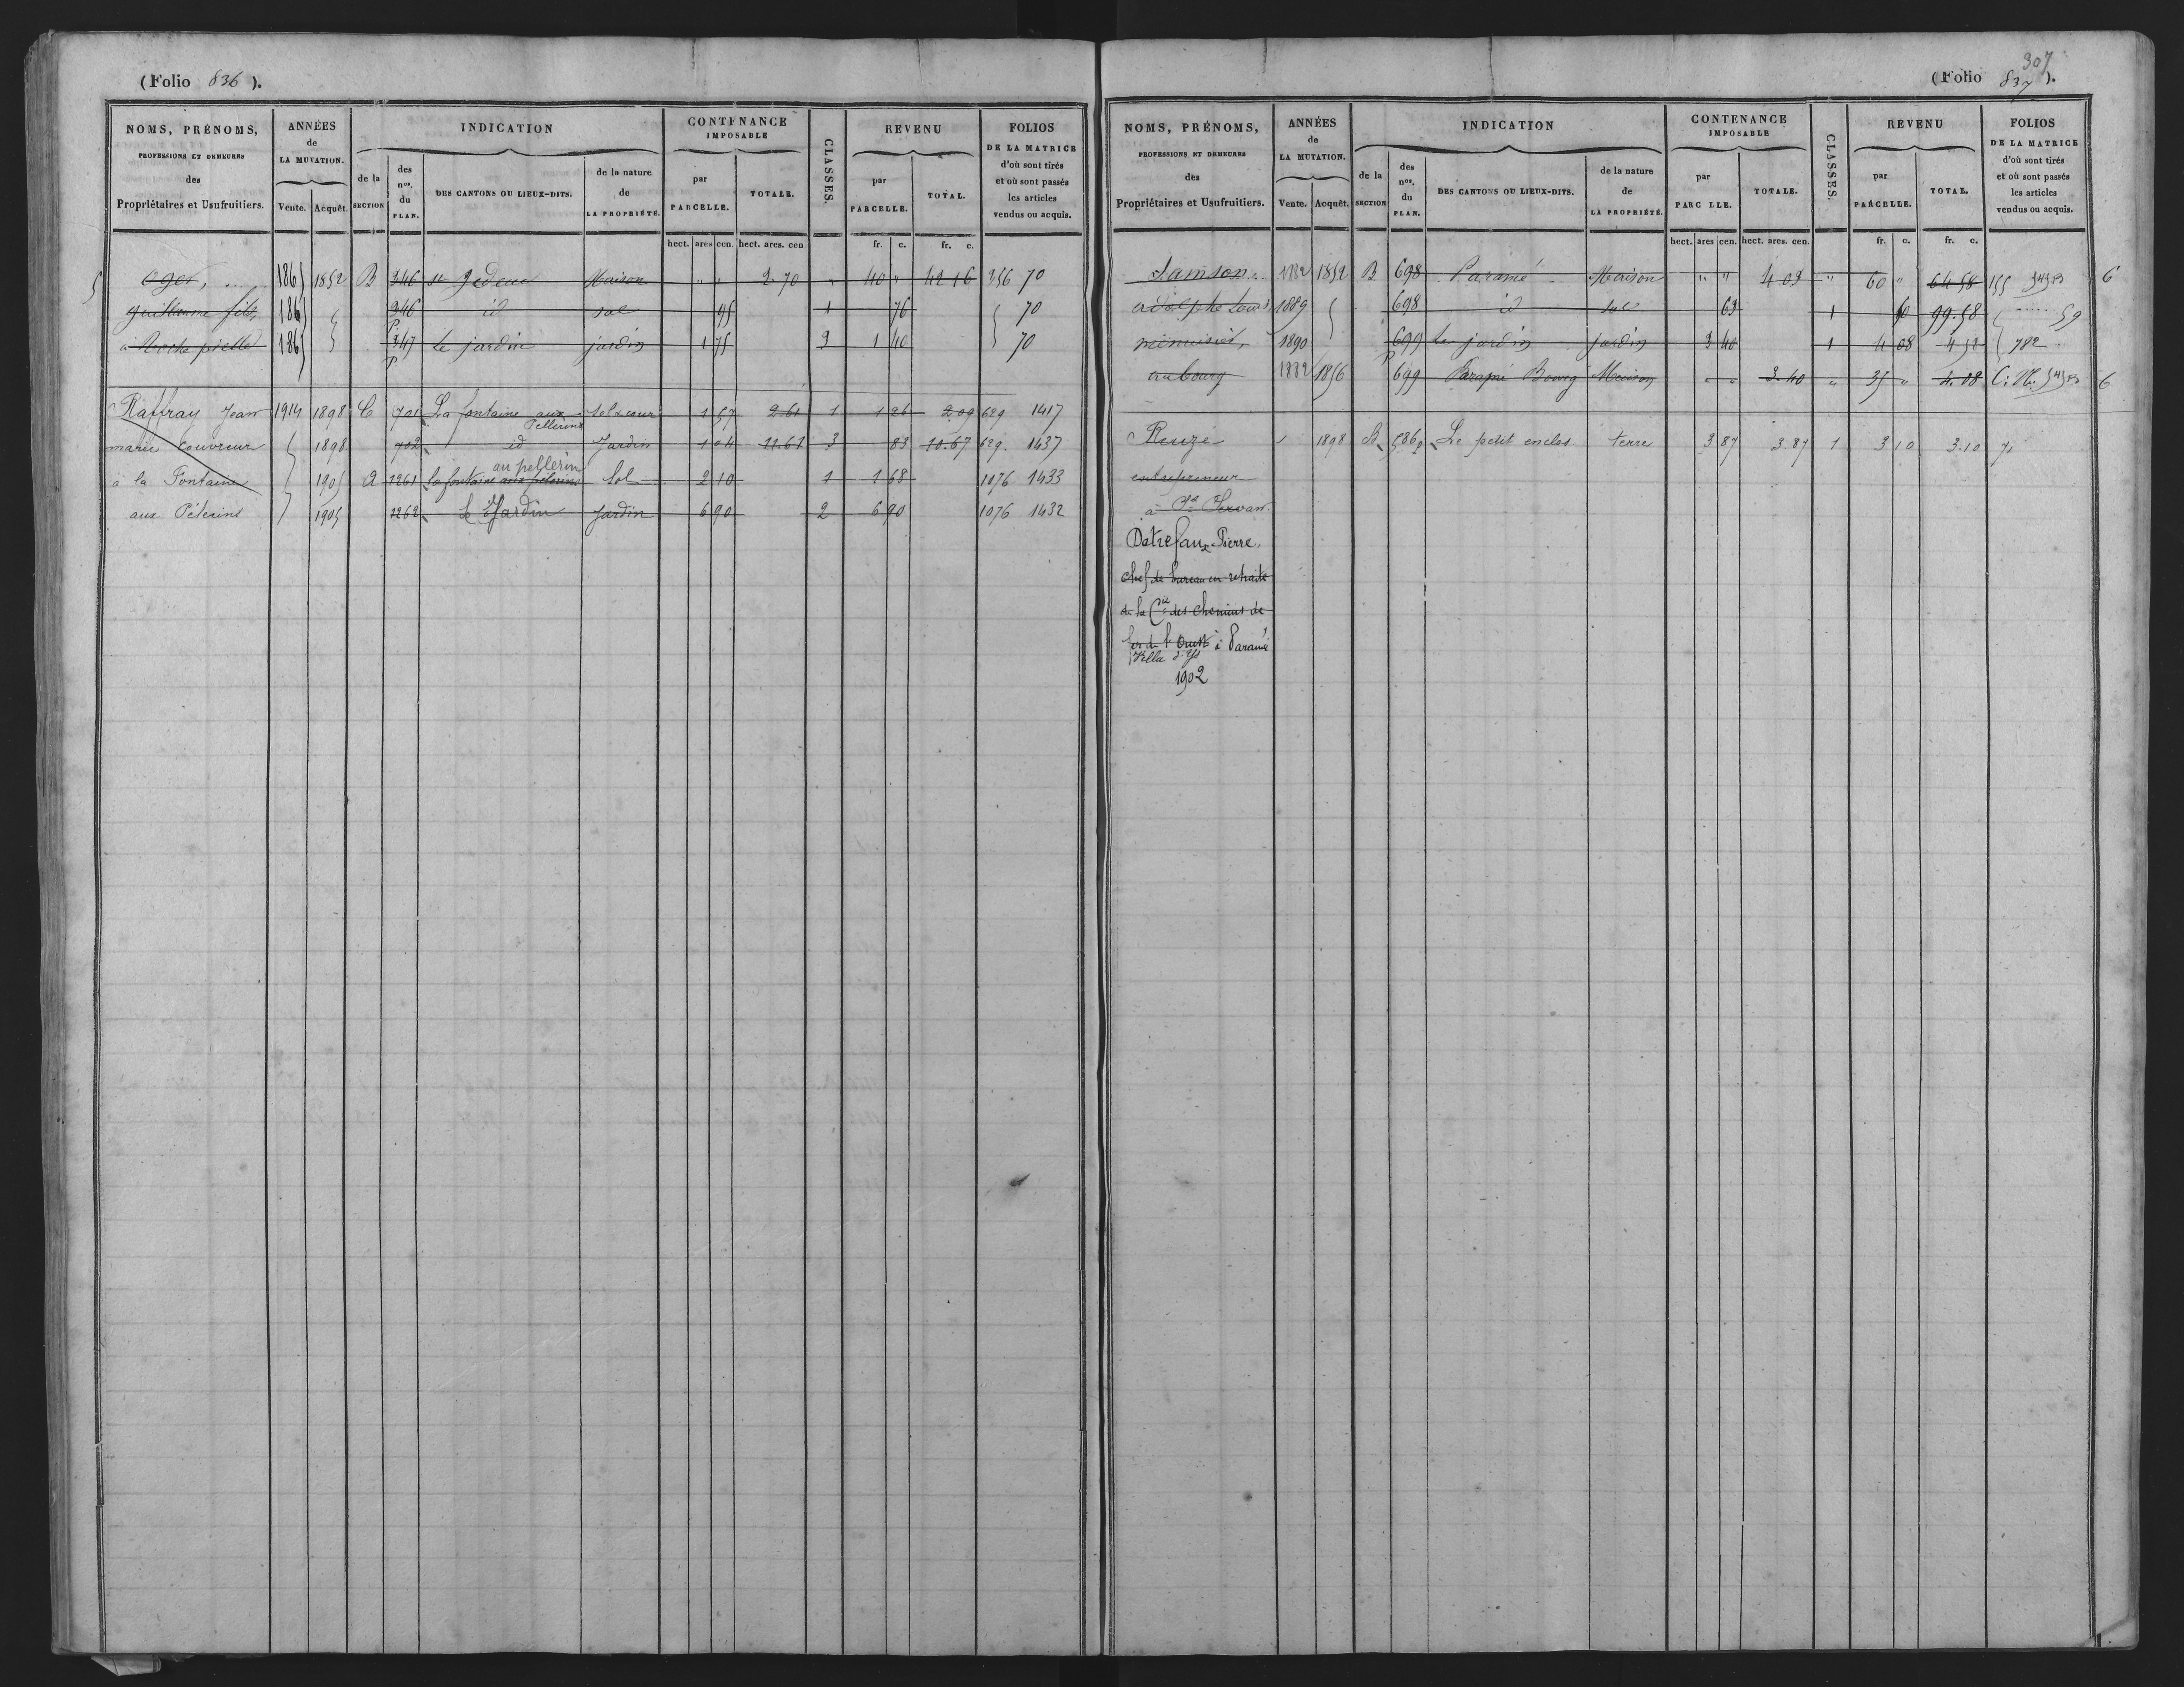 (Folio 836).
NOMS, PRÉNOMS,
PROFESSIONS ET DEMEURES
des
Propriétaires et Usufruitiers.
ANNÉES
de
LA MUTATION.
Vente. Acquêt.
INDICATION
de la
SECTION
des
nos.
du
PLAN.
DES CANTONS OU LIEUX-DITS.
de la nature
de
LA PROPRIÉTÉ.
CONTENANCE
IMPOSABLE
par
PARCELLE.
TOTALE.
CLASSES.
REVENU
par
PARCELLE.
TOTAL.
FOLIOS
DE LA MATRICE
d'où sont tirés
et où sont passés
les articles
vendus ou acquis.
hect. ares cen. hect. ares. cen. fr. c. fr. c.
Oger, 1865 1852 B 346 Maison " " 2 70 " 40 " 42 16 356 70
guillaume fils, 1865 346 id sol 95 1 76 70
a Roche pielle 1865 347 le jardin jardin 1 75 1 40 70
P
Raffray Jean 1914 1898 C 701 La fontaine aux Pellerins Sol & cour 1 57 2 61 1 1 26 2.09 629 1417
marie Couvreur 1898 702 id Jardin 1 04 11.61 3 83 10.67 629 1437
à la Fontaine 1905 A 1261 la fontaine aux pélerins au pellerin Sol 2 10 1 1 68 1076 1433
aux Pélerins 1905 1262 Le Jardin Jardin 6 90 2 6 90 1076 1432
307
(Folio 837).
NOMS, PRÉNOMS,
PROFESSIONS ET DEMEURES
des
Propriétaires et Usufruitiers.
ANNÉES
de
LA MUTATION.
Vente. Acquêt.
INDICATION
de la
SECTION
des
nos.
du
PLAN.
DES CANTONS OU LIEUX-DITS.
de la nature
de
LA PROPRIÉTÉ.
CONTENANCE
IMPOSABLE
par
PARC LLE.
TOTALE.
CLASSES.
REVENU
par
PARCELLE.
TOTAL.
FOLIOS
DE LA MATRICE
d'où sont tirés
et où sont passés
les articles
vendus ou acquis.
hect. ares cen. hect. ares. cen. fr. c. fr. c.
Samson 1882 1852 B 698 Paramé Maison " " 4 03 " 60 " 64 58 155 6
adolphe Louis 1889 698 id sol 63 1 99.58 59
menuisier, 1890 699 Le jardin jardin 3 40 1 4 08 4 58 782
au bourg 1882 1856 P 699 Paramé Bourg Maison " " 3.40 " 35 " 4.08 C. N. 6
Reuze 1898 B 586 Le petit enclos terre 3 87 3 87 1 3 10 3.10
entrepreneur
à St Servan
Detrefaux Pierre
chef de bureau en retraite
de la Cie des chemins de
fer de l'Ouest à Paramé
Villa d'Ys
1902